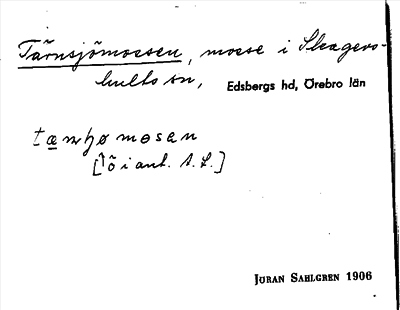 Tärnsjömossen, mosse i Skagers-
hults sn, Edsbergs hd, Örebro län
tærnʃø mosen
[ õ i ant. A. L.]
JÖRAN SAHLGREN 1906